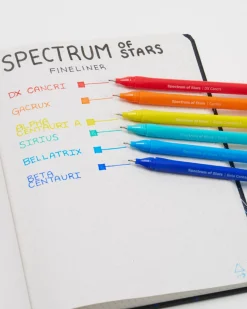 SPECTRUM OF STARS
FINELINER
DX CANCRI
GACRUX
ALPHA
CENTAURI A
SIRIUS
BELLATRIX
BETA
CENTAURI
Spectrum of Stars
Spectrum of Stars
Spectrum of Stars
Spectrum of Stars
Spectrum of Stars
Spectrum of Stars